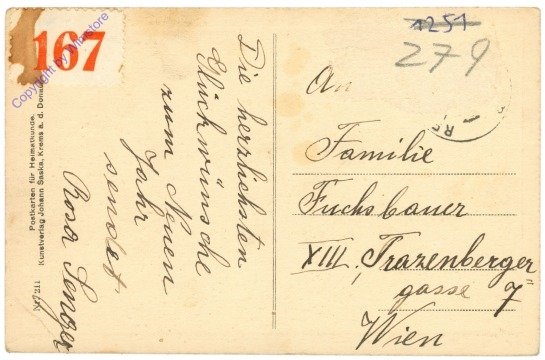 167
Copyright by Wimstore
1251
279
Die herzlichsten
Glückwünsche
zum Neuen
Jahr
sendet
Rosa
An
Familie
Fuchsbauer
XIII. Trazenberger
gasse 7
Wien
Postkarten für Heimatkunde.
Kunstverlag Johann Saska, Krems a. d. Donau
Nr. 211